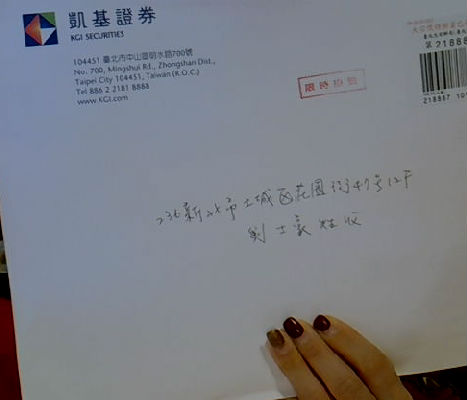 凱基證券
KGI SECURITIES
104451 臺北市中山區明水路700號
No. 700, Mingshui Rd., Zhongshan Dist.,
Taipei City 104451, Taiwan (R.O.C.)
Tel 886 2 2181 8888
www.KGI.com
限時掛號
第 21888
218887 10
236 新北市土城區花園街47号12F
劉士豪 收